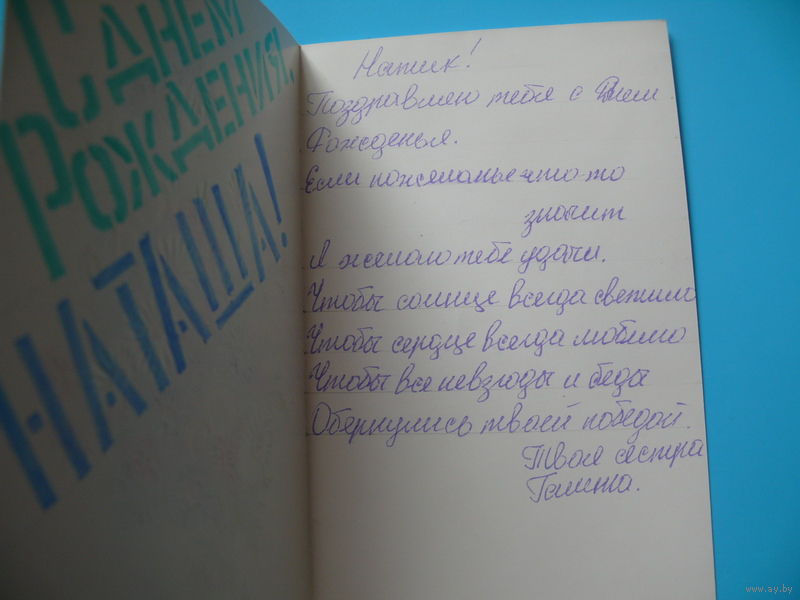 С ДНЕМ
РОЖДЕНИЯ,
НАТАША!
Натик!
Поздравляю тебя с Днем
Рожденья.
Если пожеланье что-то
значит
Я желаю тебе удачи.
Чтобы солнце всегда светило
Чтобы сердце всегда любило
Чтобы все невзгоды и беды
Обернулись твоей победой.
Твоя сестра
Галина.
www.ay.by